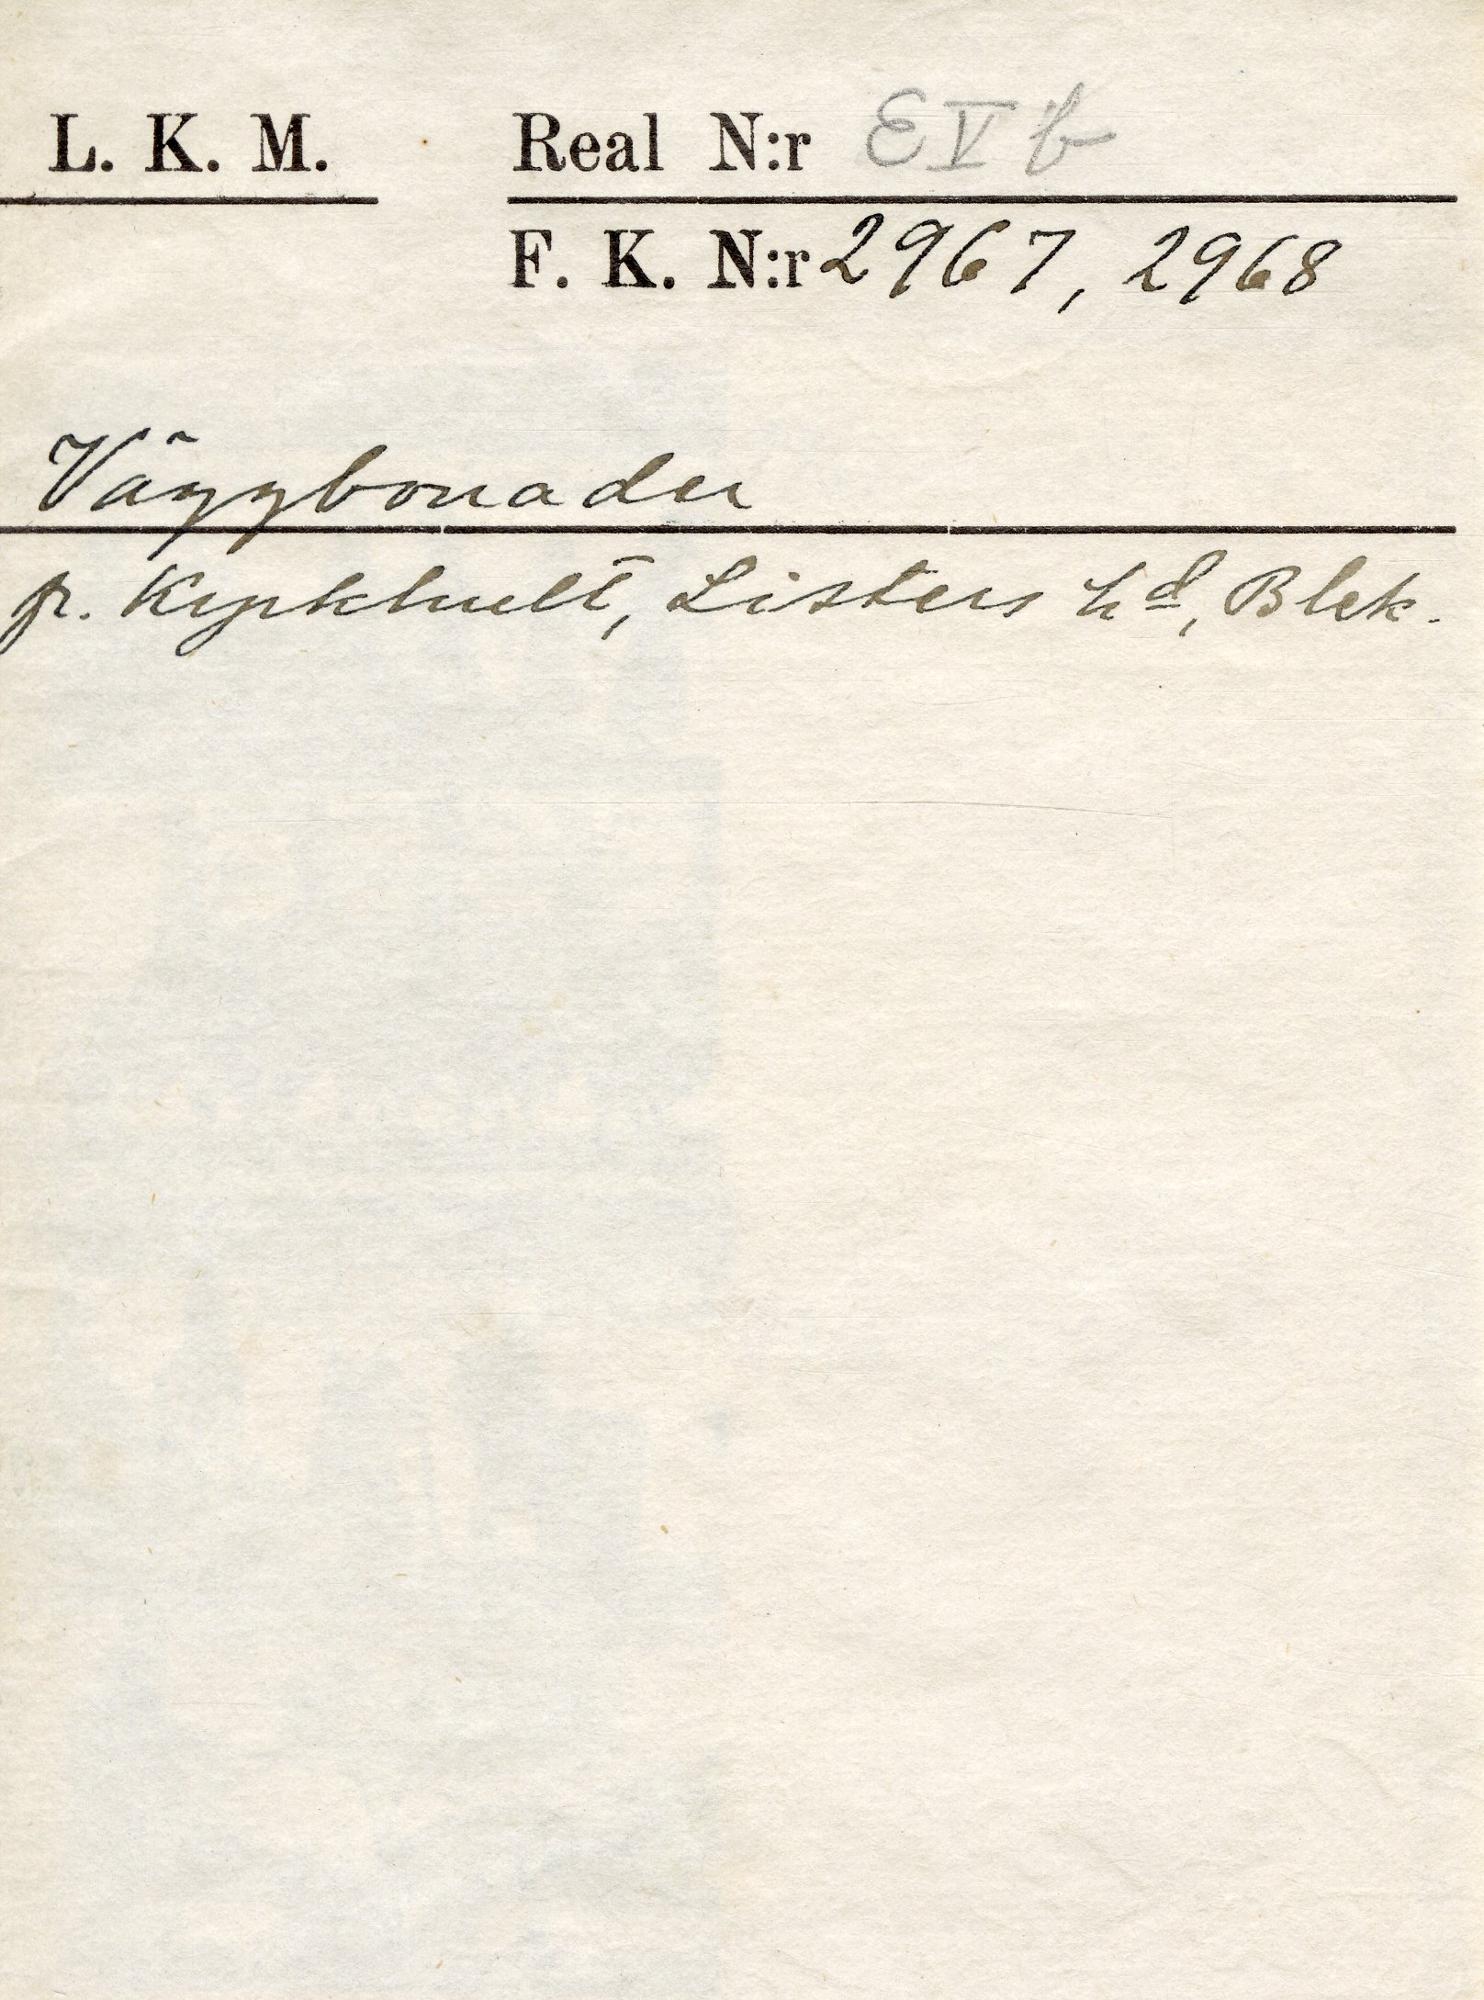 L. K. M. Real N:r E V b
F. K. N:r 2967, 2968
Väggbonader
fr. Kyrkhult, Listers hd, Blek.